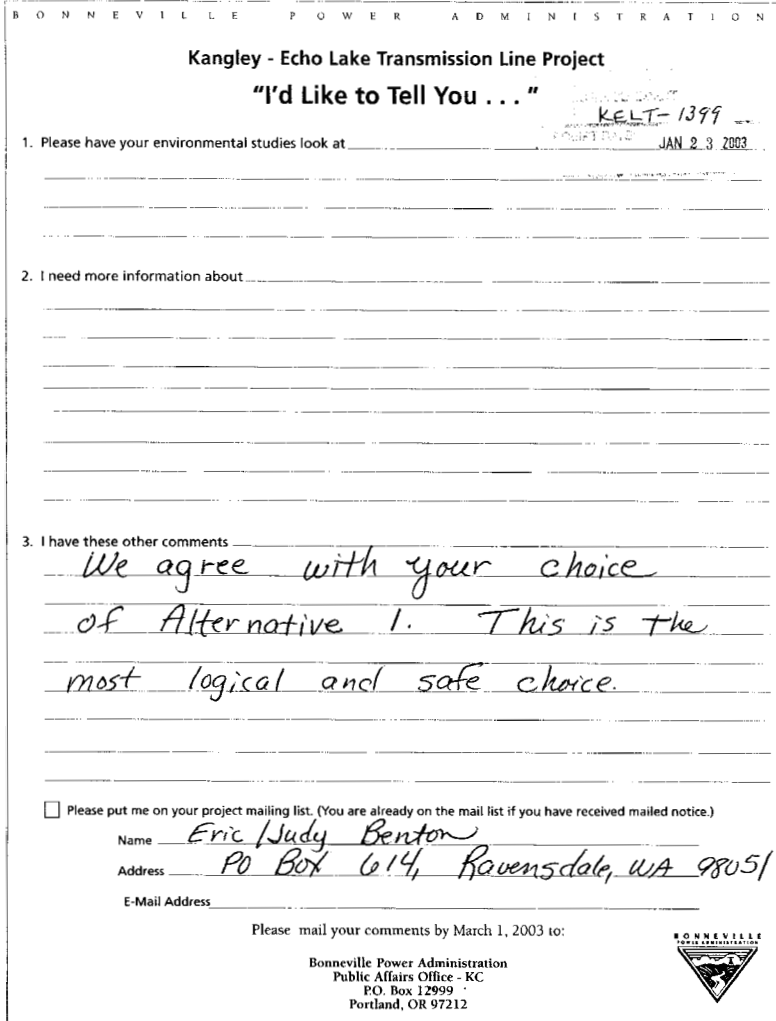 BONNEVILLE POWER ADMINISTRATION
Kangley - Echo Lake Transmission Line Project
"I'd Like to Tell You . . . "
KELT-1399
1. Please have your environmental studies look at
JAN 23 2003
2. I need more information about
3. I have these other comments
We agree with your choice
of Alternative 1. This is the
most logical and safe choice.
Please put me on your project mailing list. (You are already on the mail list if you have received mailed notice.)
Name Eric/Judy Benton
Address PO Box 614, Ravensdale, WA 98051
E-Mail Address
Please mail your comments by March 1, 2003 to:
Bonneville Power Administration
Public Affairs Office - KC
P.O. Box 12999
Portland, OR 97212
BONNEVILLE
POWER ADMINISTRATION